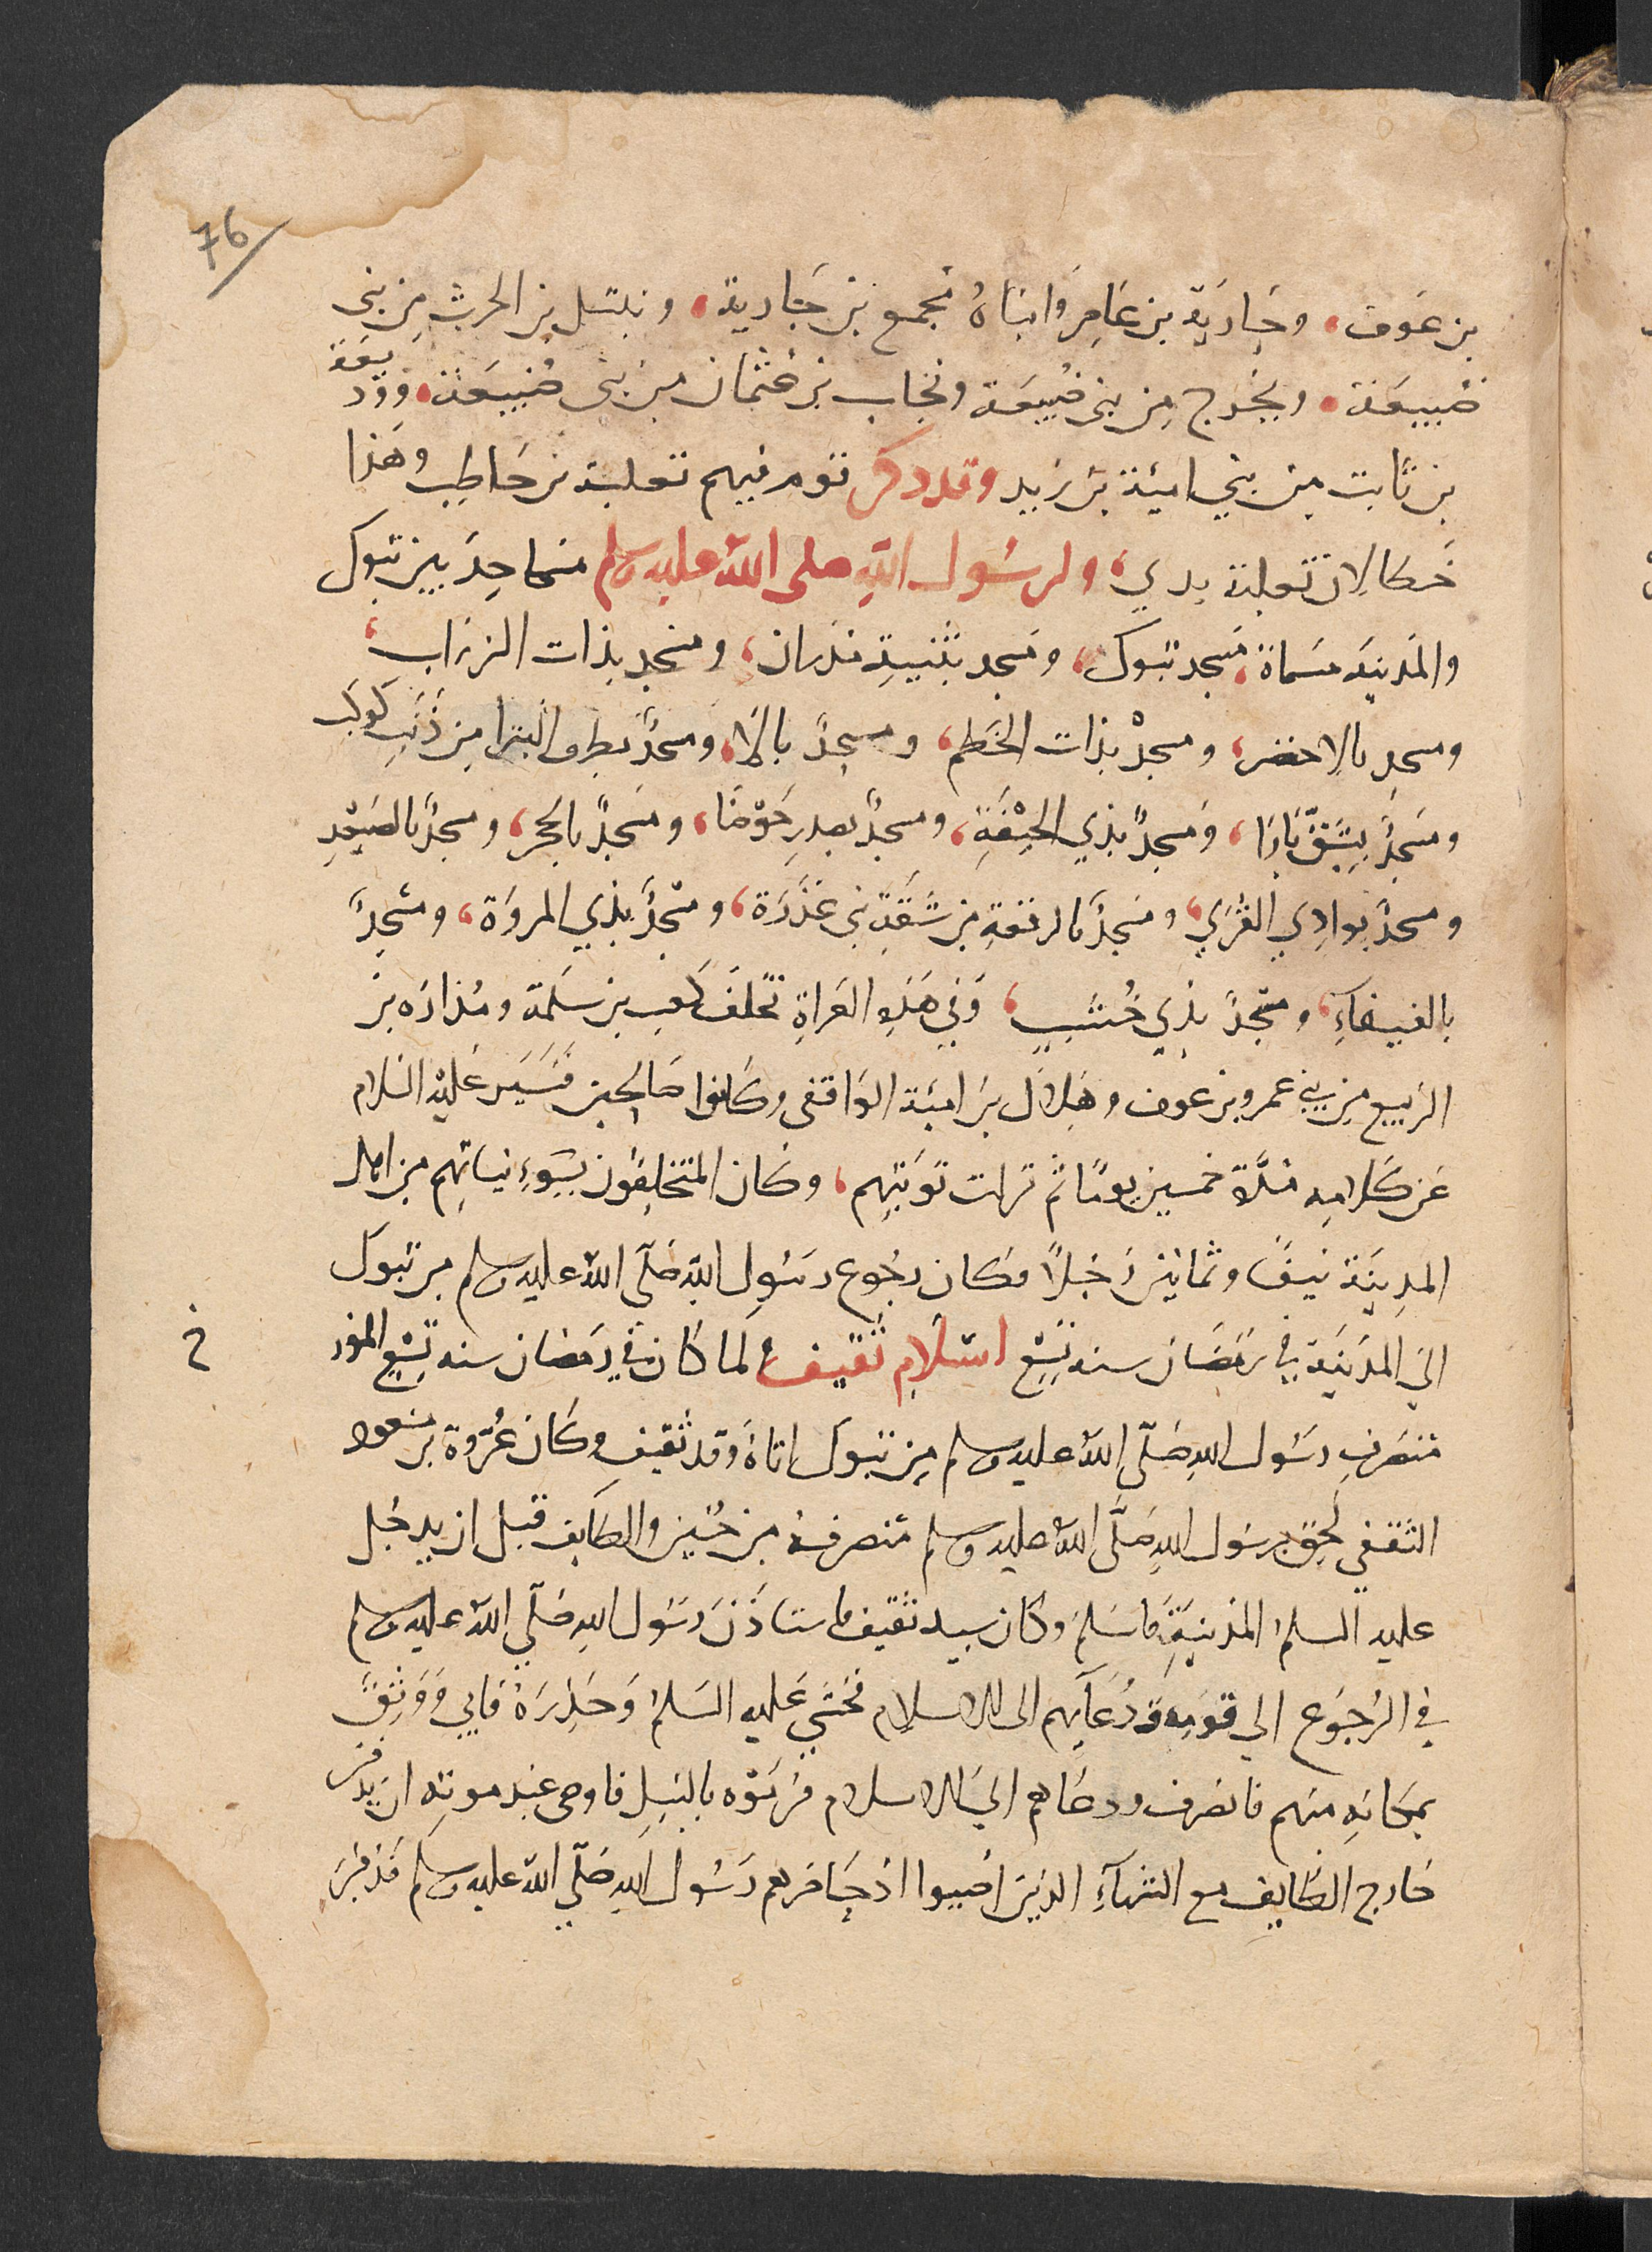 76
بن عَوف، وجَاريَة بن عَامِر وابناهُ مجمع بن جَارية، ونبتل بن الحرث مِن بنى
ضُبيعَة، وبَحْزج مِن بنى ضُبيعَة وبجاب بن عُثمان من بنى ضُبيعَة، ووديعَة
بن ثابت مِن بني اميّة بن زيد وقد ذكر قوم فيهم ثعلبة بن حَاطِب وهَذا
خَطا لان ثعلبة بدري، ولرسُول اللهِ صلى اللهُ عليه وسلم مسَاجِد بين تبوك
والمَدينَه مسَماة، مَسجد تبوك، ومَسجد بثنيةِ مَدرَان، ومَسجد بذات الزرَاب،
ومسجد بالاخضر، ومسجدٌ بذات الخَطم، ومسجدٌ بالَا، ومسجدٌ بطرف البترا مِن ذَنَبِ كَوكَب
ومَسجدٌ بِشِقّ تَارَا، ومَسجدٌ بذي الجِيْفَةِ، ومسجدٌ بصدرِ حَوْضَا، ومَسجدٌ بالحجر، ومسجدٌ بالصَعِيْدِ
ومسجدٌ بوادِي القُرَي، ومَسجدٌ بالرقعةِ من شَقَةِ بنى عُذْرَة، ومسْجدٌ بذي المروَة، ومسْجدٌ
بالفيفاءِ، ومَسْجدٌ بذي خُشُبٍ، وَفي هَذِهِ الغزاةِ تخلّفَ كعب بن سَلمَة ومُرَارَه بن
الربيع مِن بني عمرو بن عوف وهِلال بن اميّة الواقفى وكانوا صَالحِين
عَن كلامِه مدّة خمسين يومًا ثم نزلت تَوبَتِهم، وكان المتخلِفُون بسُوءِ نياتِهِم من اهل
المدينَة نيفً وثمانين رَجُلاً فكان رجُوع رسُول اللهِ صَلّى اللهُ عليه وسلم من تبوك
الي المدَينَة في رَمَضَان سنه تِسْعٍ اسْلامِ ثَقيف ولما كان في رمَضان سنه تِسْعٍ المؤر
خ
منصَرفِ رسُول اللهِ صَلّى اللهُ عليه وسلم مِن تبوك اتاهُ وفد ثَقيف وكان عُرْوة بن مسَعود
الثقفي لحِقَ برسُول اللهِ صَلَّى اللهُ عليه وسلم منصرفهُ من حُنين والطايف قبل ان يدخل
عليه السلمُ المَدينَةَ فاسْلمَ وكان سيد ثقيف فاستاذَن رسُول اللهِ صَلّي اللهُ عليه وسلم
في الرُجوَع الي قَومِه ودُعَايهم الى الاسلام فخشيَ عَليه السَلمُ وَحَذرَهُ فابي وَوَثِقَ
بمكانِهِ منهم فانصَرف ودعَاهم الي الاسلام فرمَوْه بالنَبلِ فاوصى عند موته ان يدفن
خَارج الطايفِ مع الشهدَآءِ الذين اصِيبوا اذ حَاصَرهم رَسُول اللهِ صَلّي اللهُ عليه وسلم فدفن